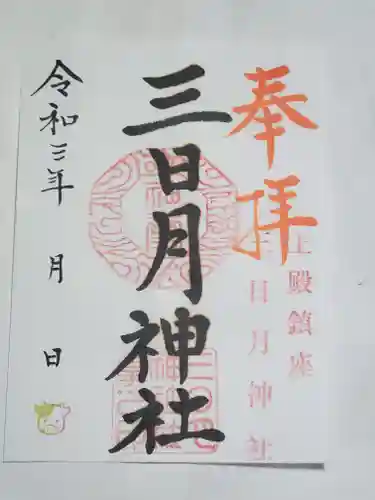 奉拝
上殿鎮座
三日月神社
三日月神社
令和三年 月 日